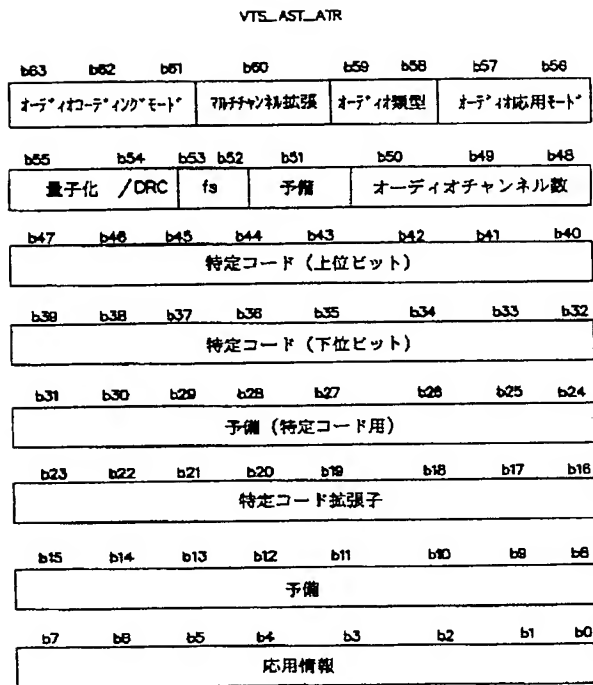 VTS_AST_ATR
b63 b62 b61 b60 b59 b58 b57 b56
オーディオコーディングモード マルチチャンネル拡張 オーディオ類型 オーディオ応用モード
b55 b54 b53 b52 b51 b50 b49 b48
量子化 /DRC fs 予備 オーディオチャンネル数
b47 b46 b45 b44 b43 b42 b41 b40
特定コード (上位ビット)
b39 b38 b37 b36 b35 b34 b33 b32
特定コード (下位ビット)
b31 b30 b29 b28 b27 b26 b25 b24
予備 (特定コード用)
b23 b22 b21 b20 b19 b18 b17 b16
特定コード拡張子
b15 b14 b13 b12 b11 b10 b9 b8
予備
b7 b6 b5 b4 b3 b2 b1 b0
応用情報